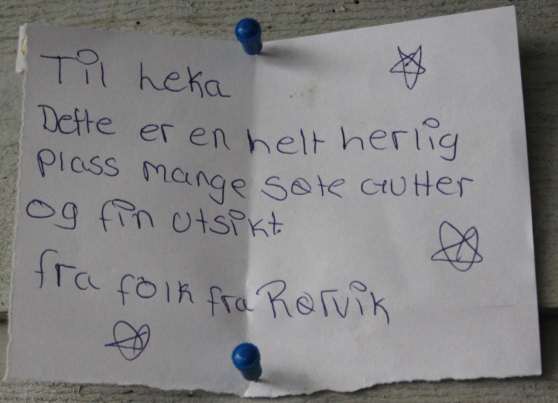 Til heka
Dette er en helt herlig
plass mange søte gutter
og fin utsikt.
fra folk fra Rørvik